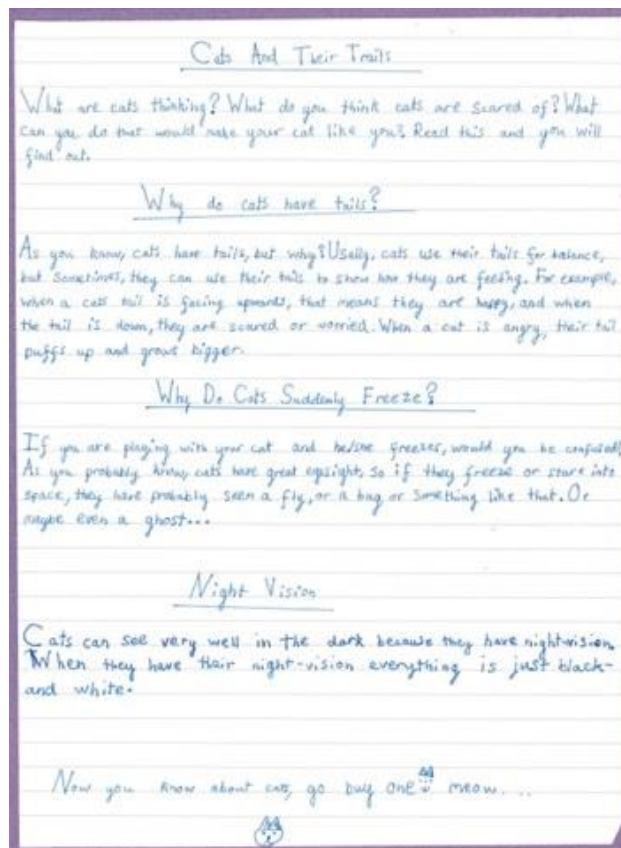 Cats And Their Traits
What are cats thinking? What do you think cats are scared of? What
can you do that would make your cat like you? Read this and you will
find out.
Why do cats have tails?
As you know, cats have tails, but why? Usally, cats use their tails for balance,
but sometimes, they can use their tails to show how they are feeling. For example,
when a cats tail is facing upwards, that means they are happy, and when
the tail is down, they are scared or worried. When a cat is angry, their tail
puffs up and grows bigger.
Why Do Cats Suddenly Freeze?
If you are playing with your cat and he/she freezes, would you be confused?
As you probably know, cats have great eyesight, so if they freeze or stare into
space, they have probably seen a fly, or a bug or something like that. Or
maybe even a ghost...
Night Vision
Cats can see very well in the dark because they have night-vision.
When they have their night-vision everything is just black-
and white.
Now you know about cats, go buy one meow...